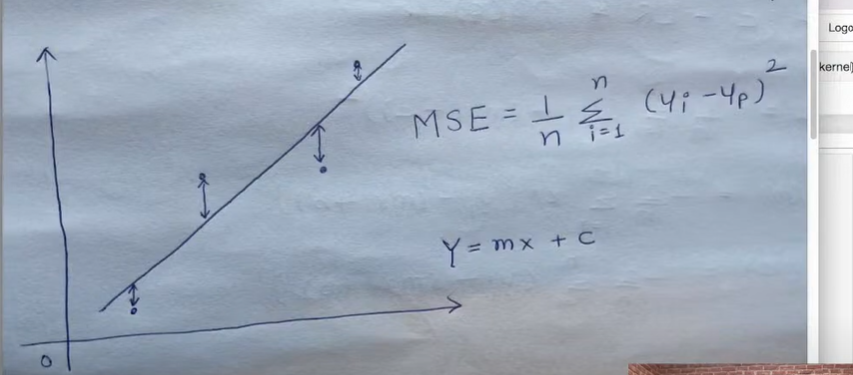 MSE = 1/n Σ i=1 n (yi - yp)2
Y = mx + c
0
Logo
kernel